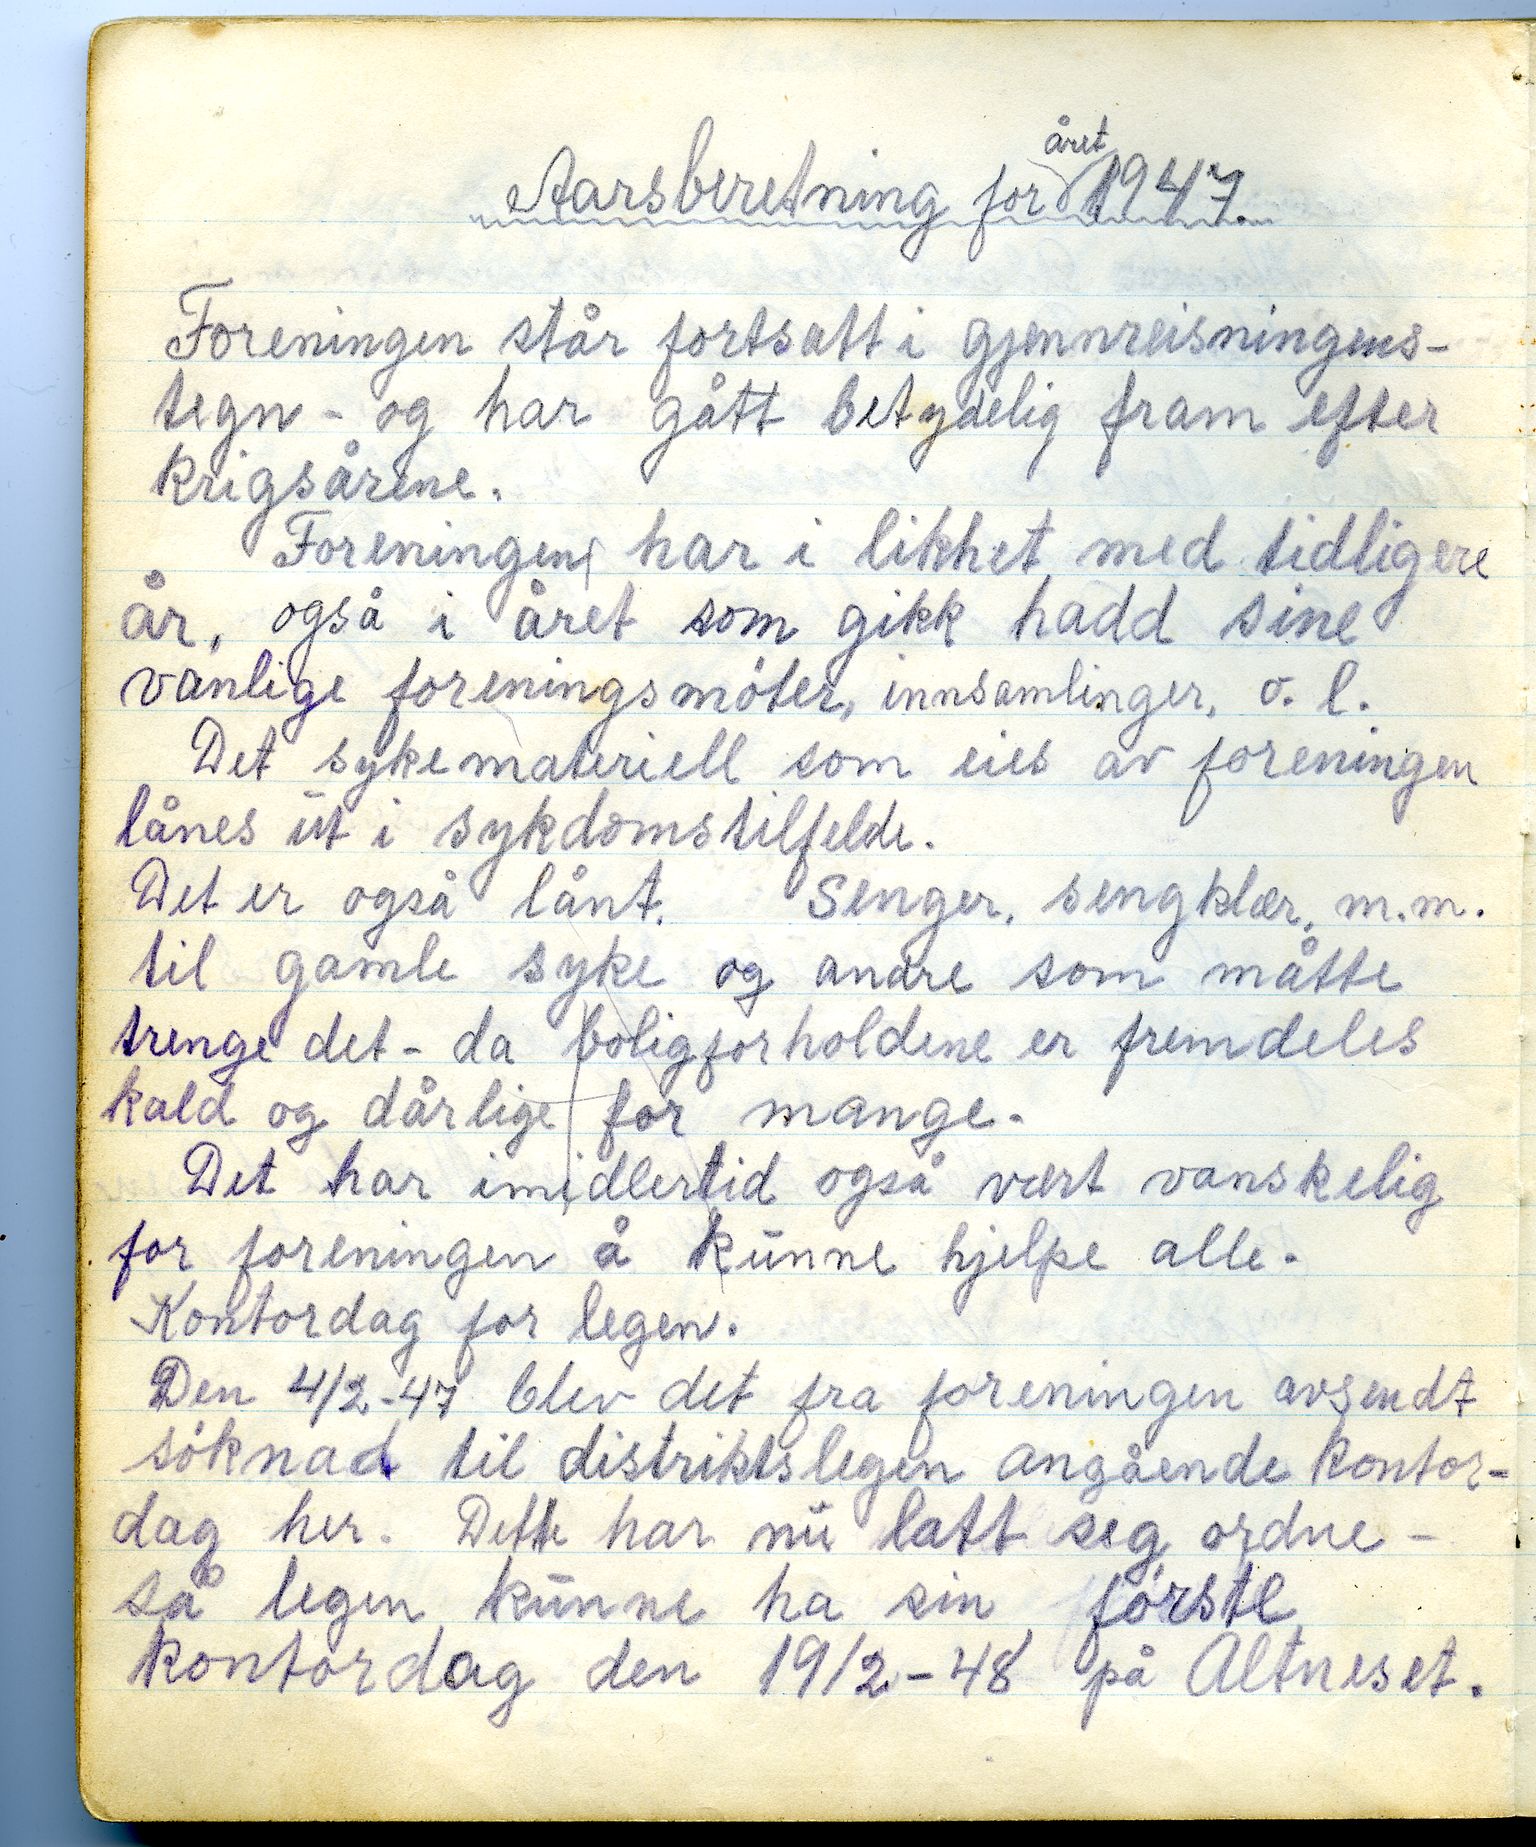 Aarsberetning for året 1947.
Foreningen står fortsatt i gjennreisningens-
tegn - og har gått betydelig fram efter
krigsårene.
Foreningen har i likhet med tidligere
år, også i året som gikk hadd sine
vanlige foreningsmöter, innsamlinger, o. l.
Det sykemateriell som eies av foreningen
lånes ut i sykdomstilfelde.
Det er også lånt. Senger, sengklær, m.m.
til gamle syke og andre som måtte
trenge det - da boligforholdene er fremdeles
kald og dårlige for mange.
Det har imidlertid også vært vanskelig
for foreningen å kunne hjelpe alle.
Kontordag for legen.
Den 4/2-47 blev det fra foreningen avsendt
söknad til distriktslegen angående kontor-
dag her. Dette har nu latt seg ordne -
så legen kunne ha sin förste
kontordag den 19/2-48 på Altneset.